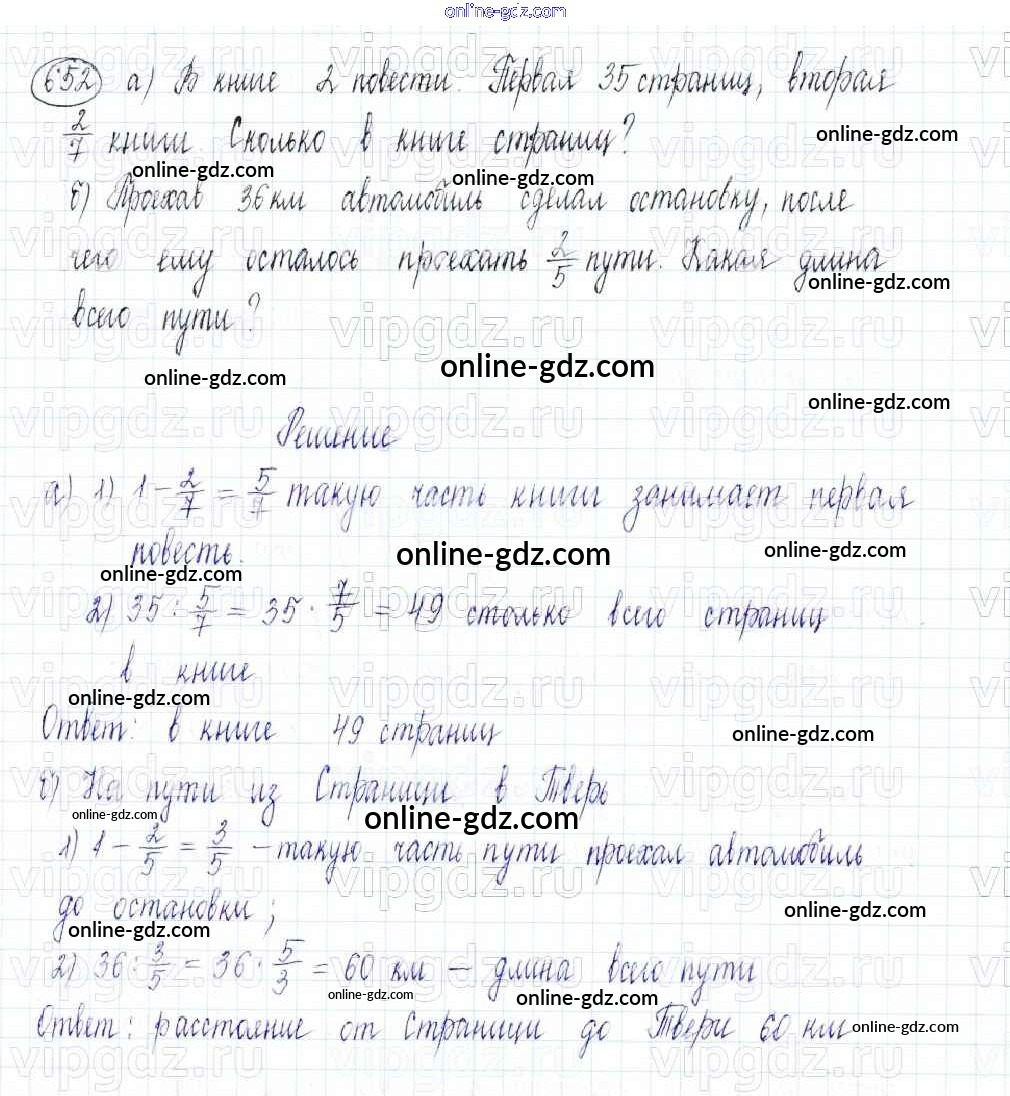 online-gdz.com
652 а) В книге 2 повести. Первая 35 страниц, вторая
2/7 книги. Сколько в книге страниц?
online-gdz.com
online-gdz.com
online-gdz.com
б) Проехав 36 км автомобиль сделал остановку, после
чего ему осталось проехать 2/5 пути. Какая длина
online-gdz.com
всего пути?
online-gdz.com
online-gdz.com
online-gdz.com
Решение
а) 1) 1 - 2/7 = 5/7 такую часть книги занимает первая
повесть.
online-gdz.com
online-gdz.com
online-gdz.com
2) 35 : 5/7 = 35 · 7/5 = 49 столько всего страниц
в книге
online-gdz.com
Ответ: в книге 49 страниц
online-gdz.com
б) На пути из Страницы в Тверь
online-gdz.com
online-gdz.com
1) 1 - 2/5 = 3/5 - такую часть пути проехал автомобиль
до остановки;
online-gdz.com
online-gdz.com
2) 36 : 3/5 = 36 · 5/3 = 60 км - длина всего пути
online-gdz.com
online-gdz.com
Ответ: расстояние от Страници до Твери 60 км
online-gdz.com
vipgdz.ru